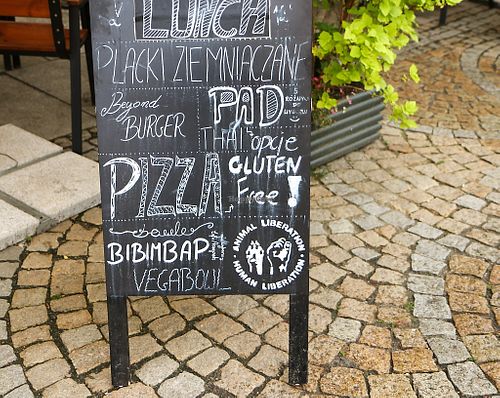 LUNCH
PLACKI ZIEMNIACZANE
Beyond
BURGER
PAD
THAI
opcje
GLUTEN
Free!
PIZZA
BIBIMBAP
VEGABOWL
ANIMAL LIBERATION
HUMAN LIBERATION